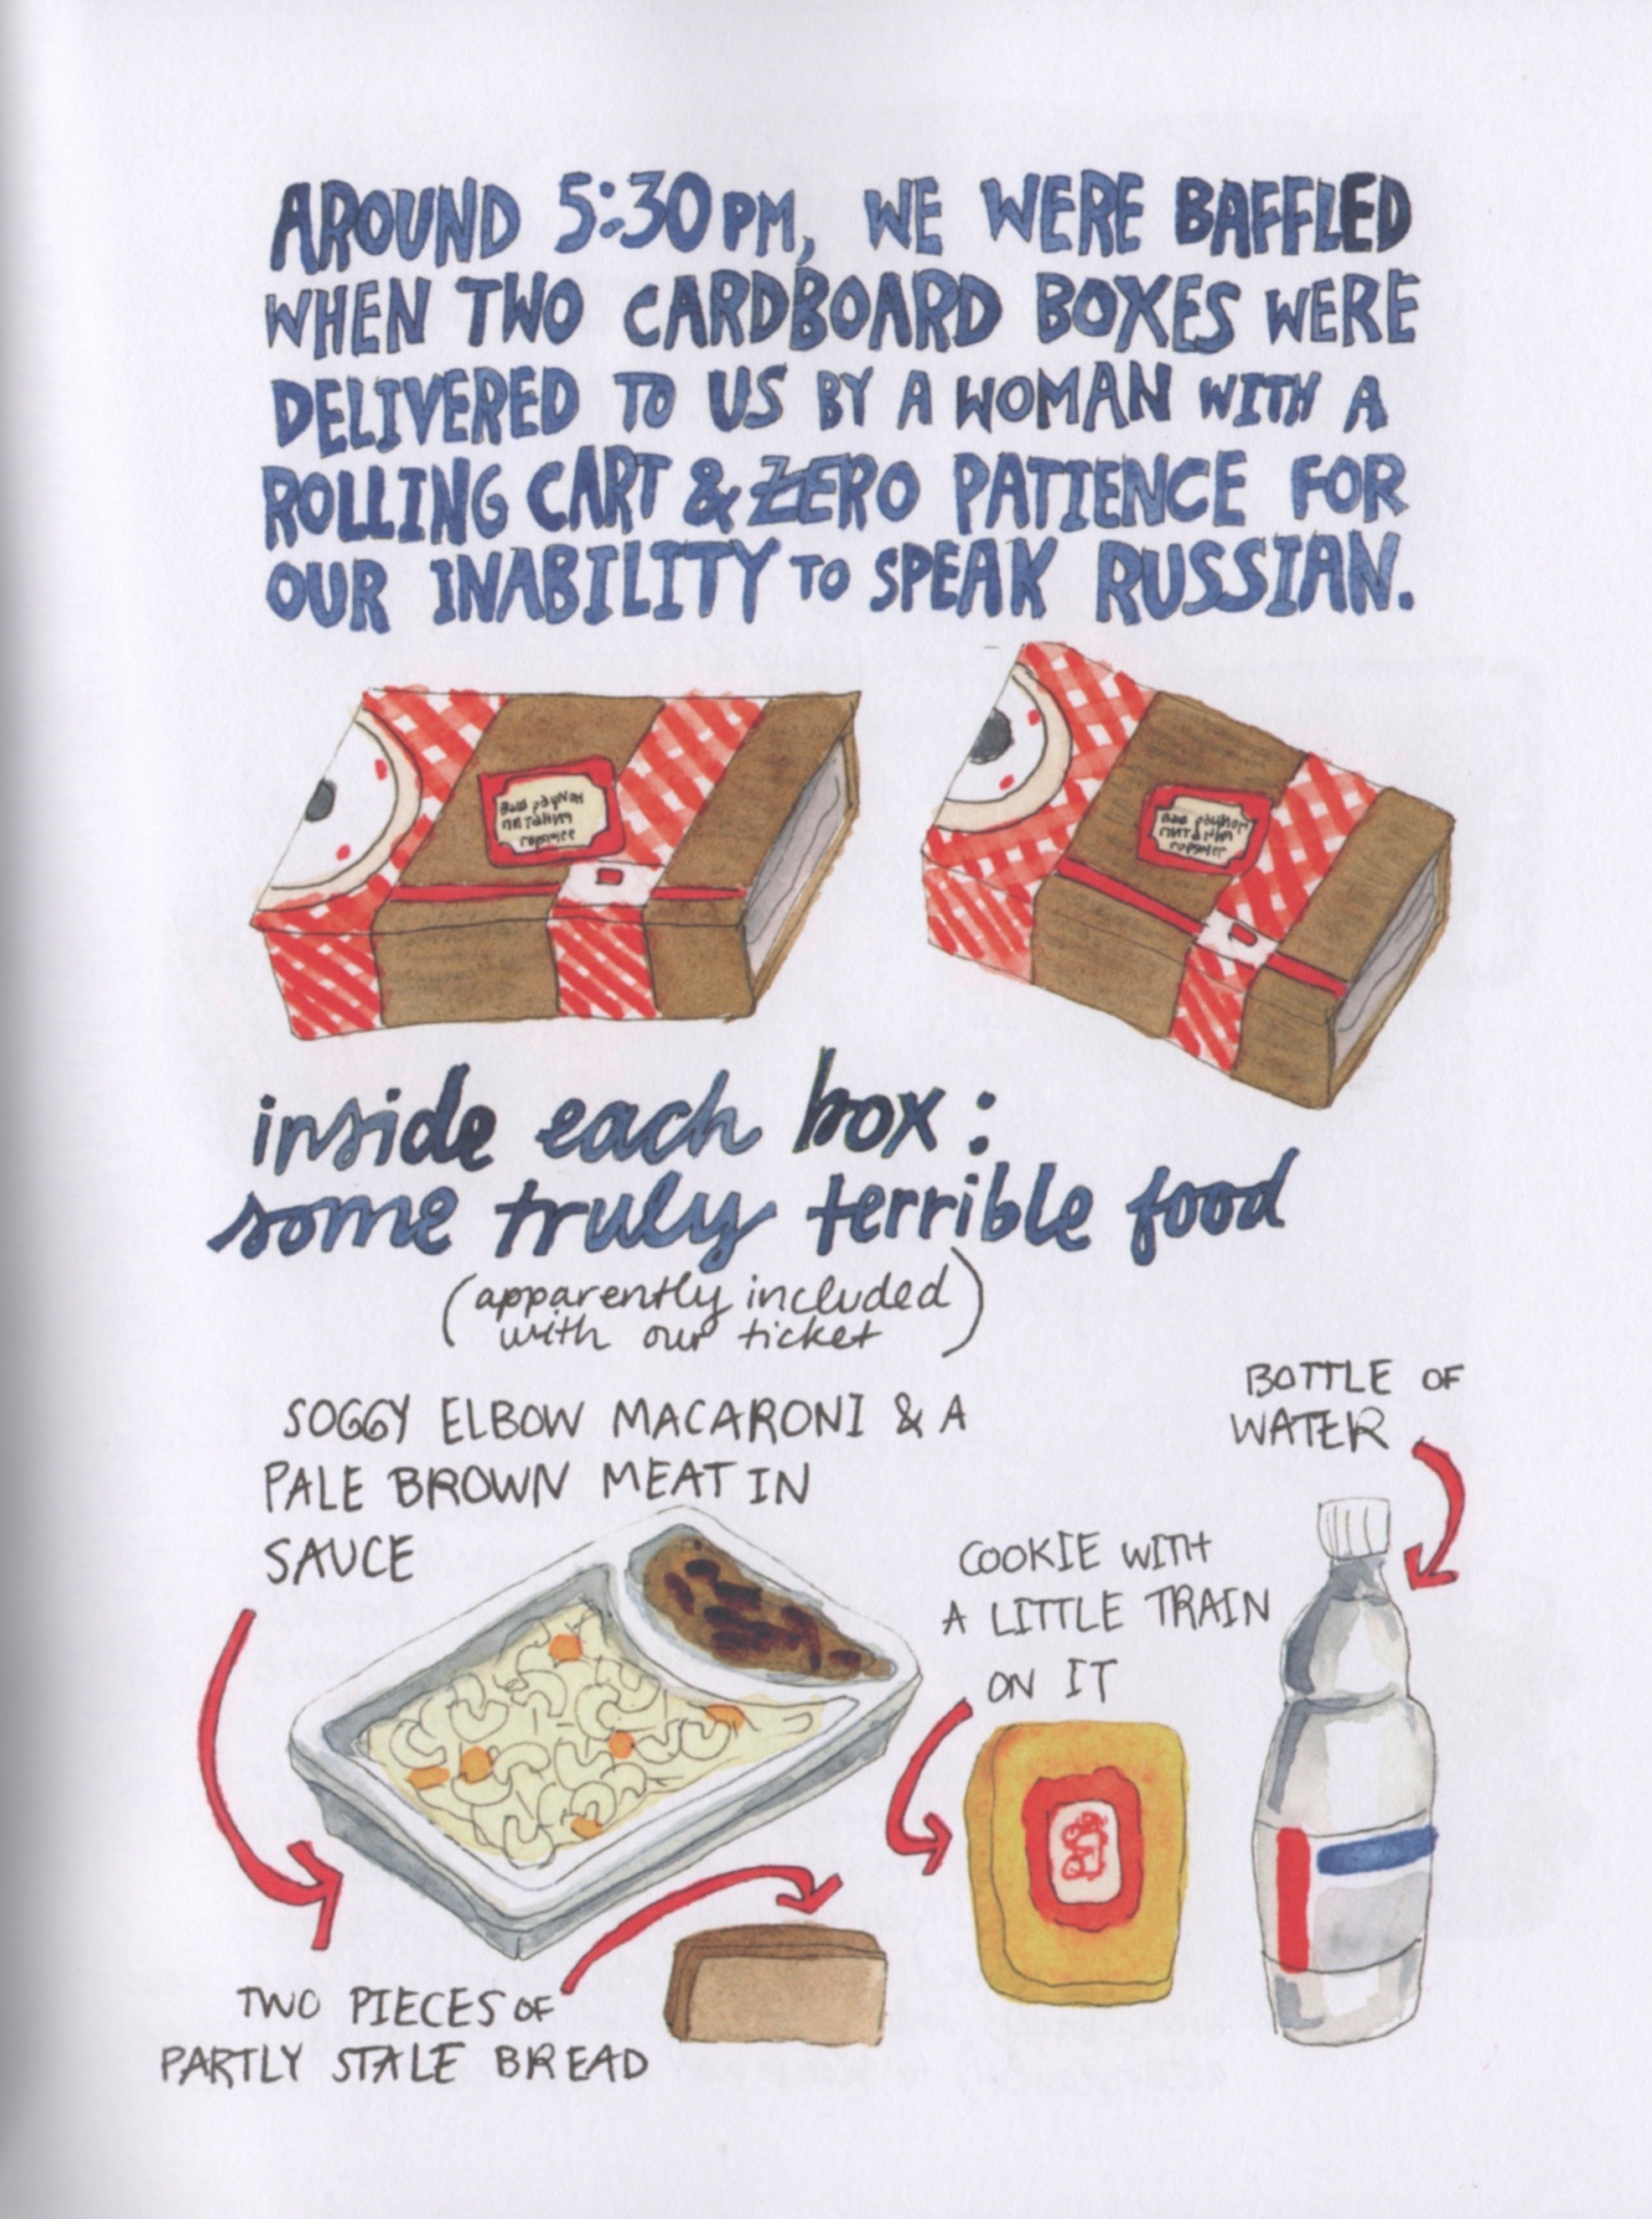 AROUND 5:30 PM, WE WERE BAFFLED
WHEN TWO CARDBOARD BOXES WERE
DELIVERED TO US BY A WOMAN WITH A
ROLLING CART & ZERO PATIENCE FOR
OUR INABILITY TO SPEAK RUSSIAN.
ваш рацион
питания
горячее
ваш рацион
питания
горячее
inside each box:
some truly terrible food
(apparently included
with our ticket)
SOGGY ELBOW MACARONI & A
PALE BROWN MEAT IN
SAUCE
BOTTLE OF
WATER
COOKIE WITH
A LITTLE TRAIN
ON IT
TWO PIECES OF
PARTLY STALE BREAD